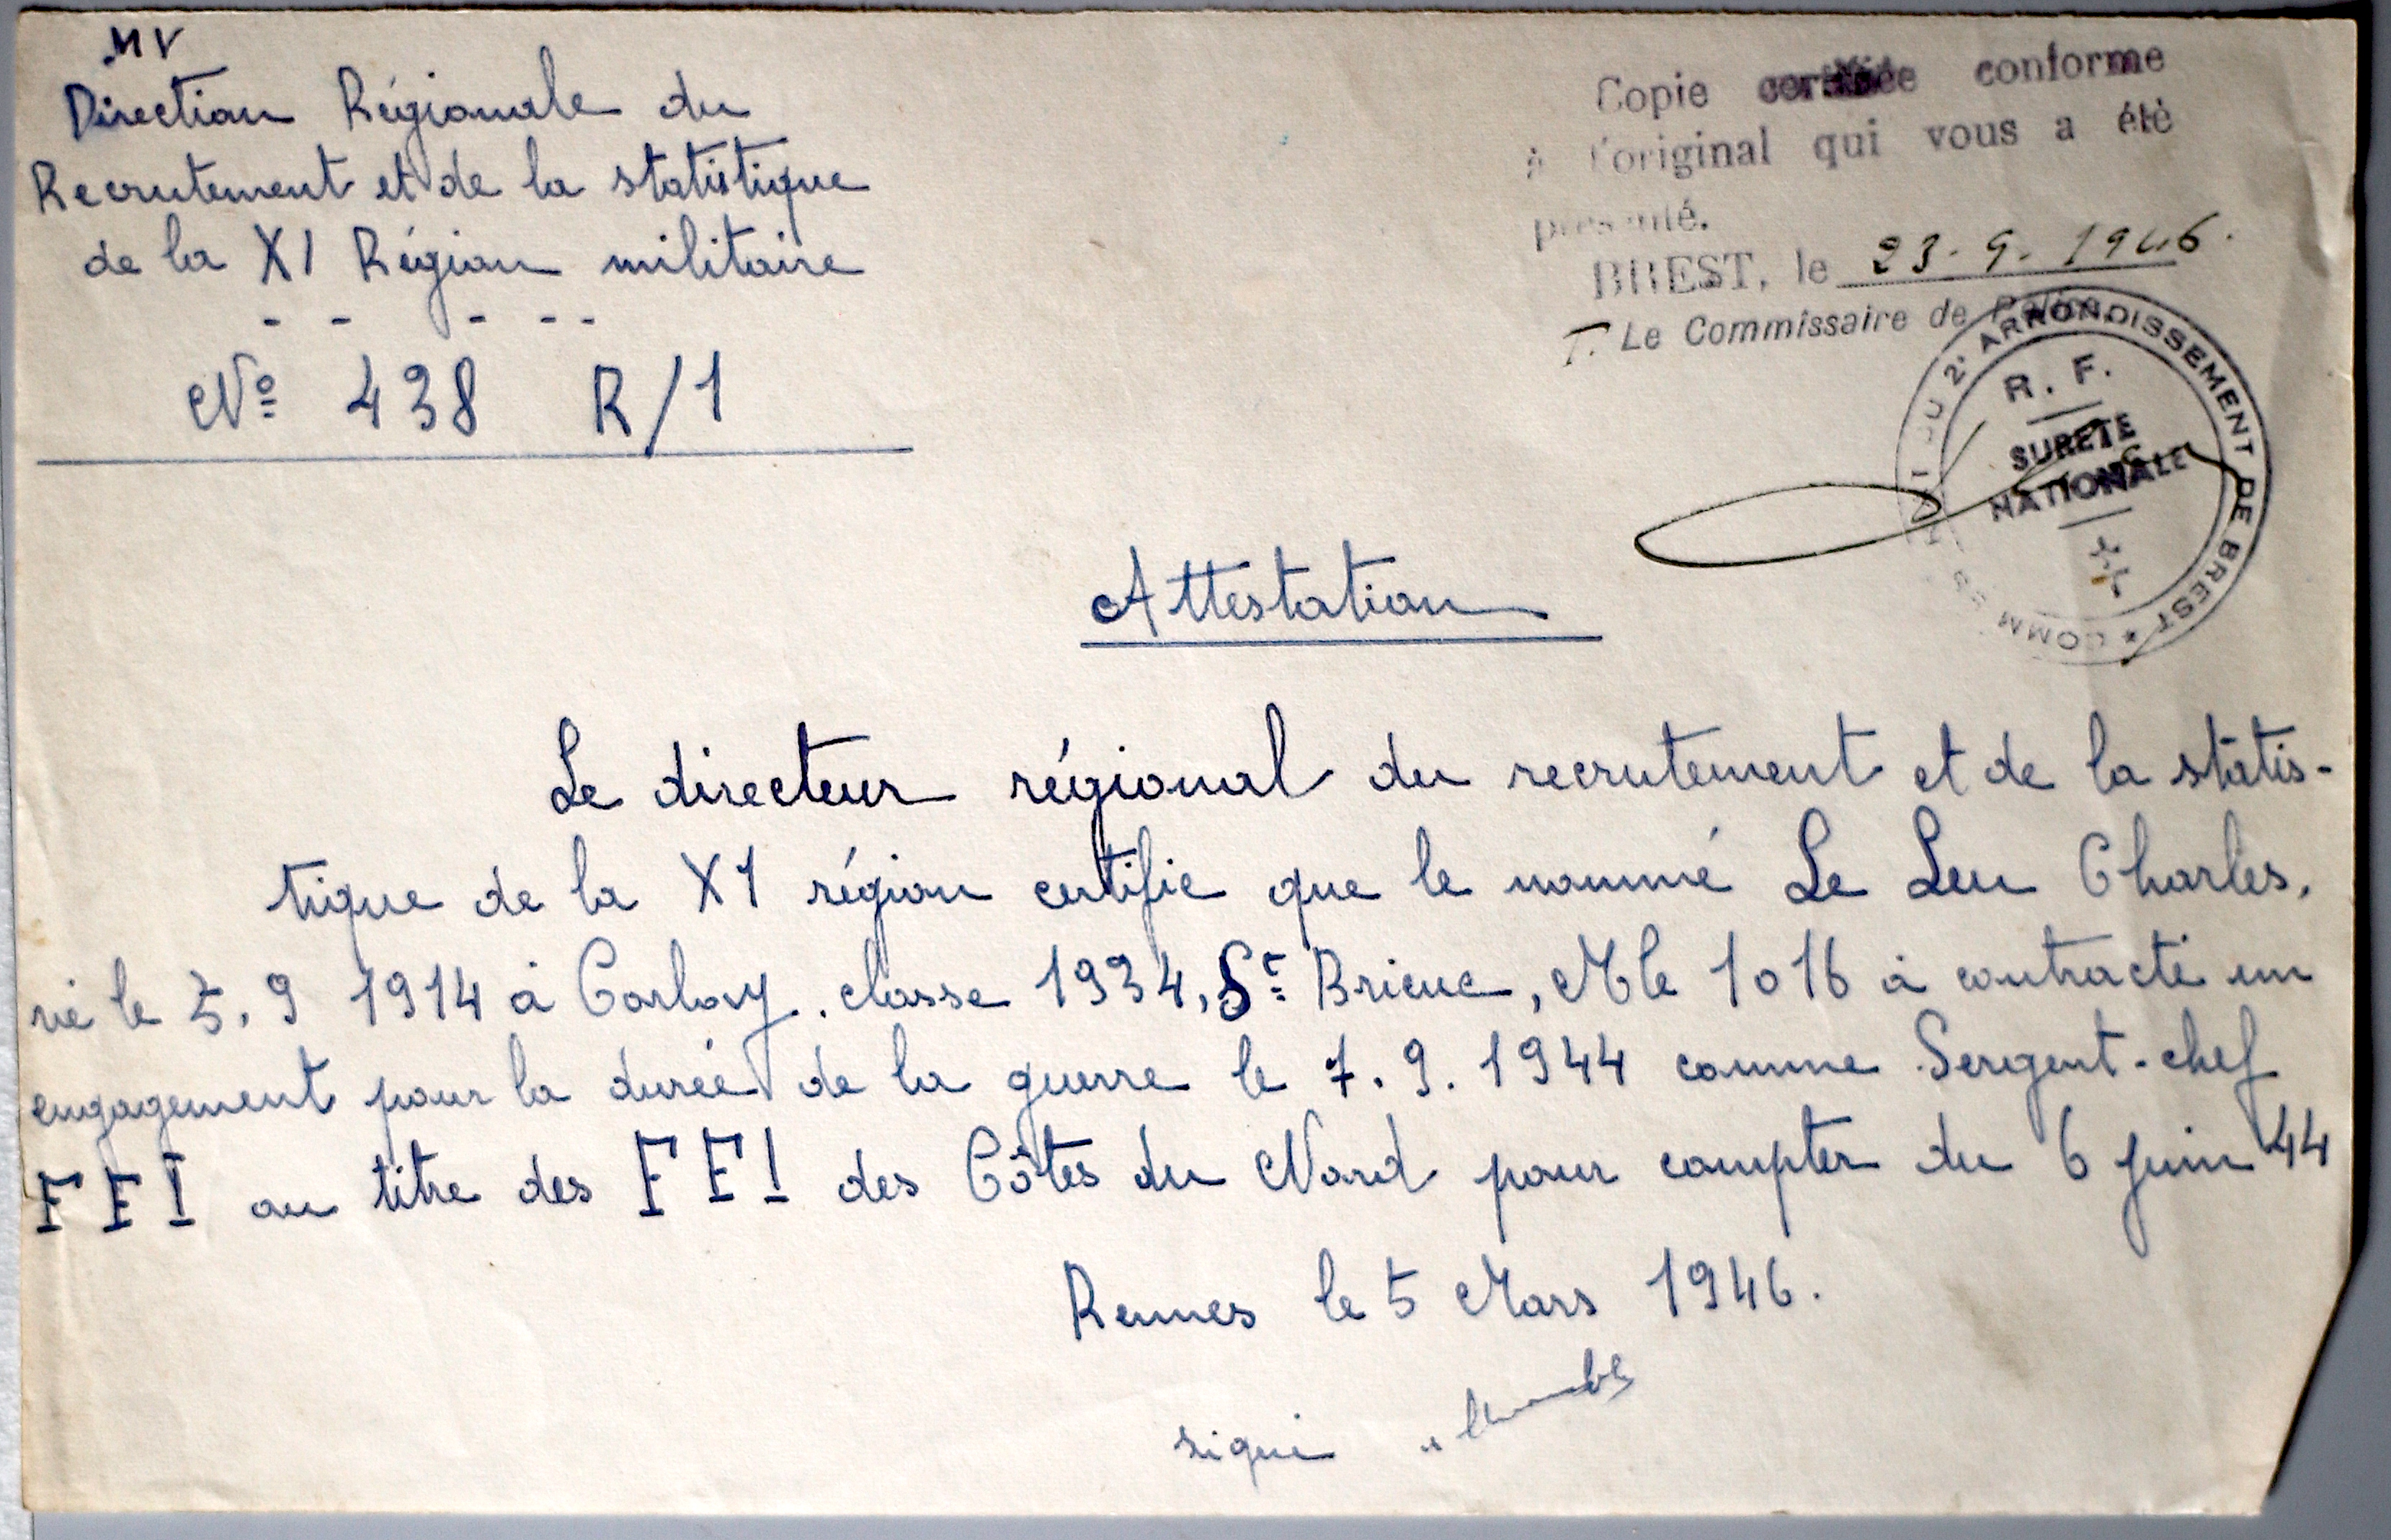 MV
Direction Régionale du
Recrutement et de la statistique
de la XI Région militaire
- - - - -
Nº 438 R/1
Copie conforme
à l'original qui vous a été
présenté.
BREST, le 23-9-1946.
Le Commissaire de Police
COMMISSARIAT DU 2e ARRONDISSEMENT DE BREST *
R. F.
SURETE
NATIONALE
Attestation
Le directeur régional du recrutement et de la statis-
tique de la XI région certifie que le nommé Le Leu Charles,
né le 5.9 1914 à Corlay. classe 1934, St Brieuc, Mle 1016 à contracté un
engagement pour la durée de la guerre le 7.9.1944 comme Sergent-chef
FFI au titre des FFI des Côtes du Nord pour compter du 6 juin 44
Rennes le 5 Mars 1946.
signé